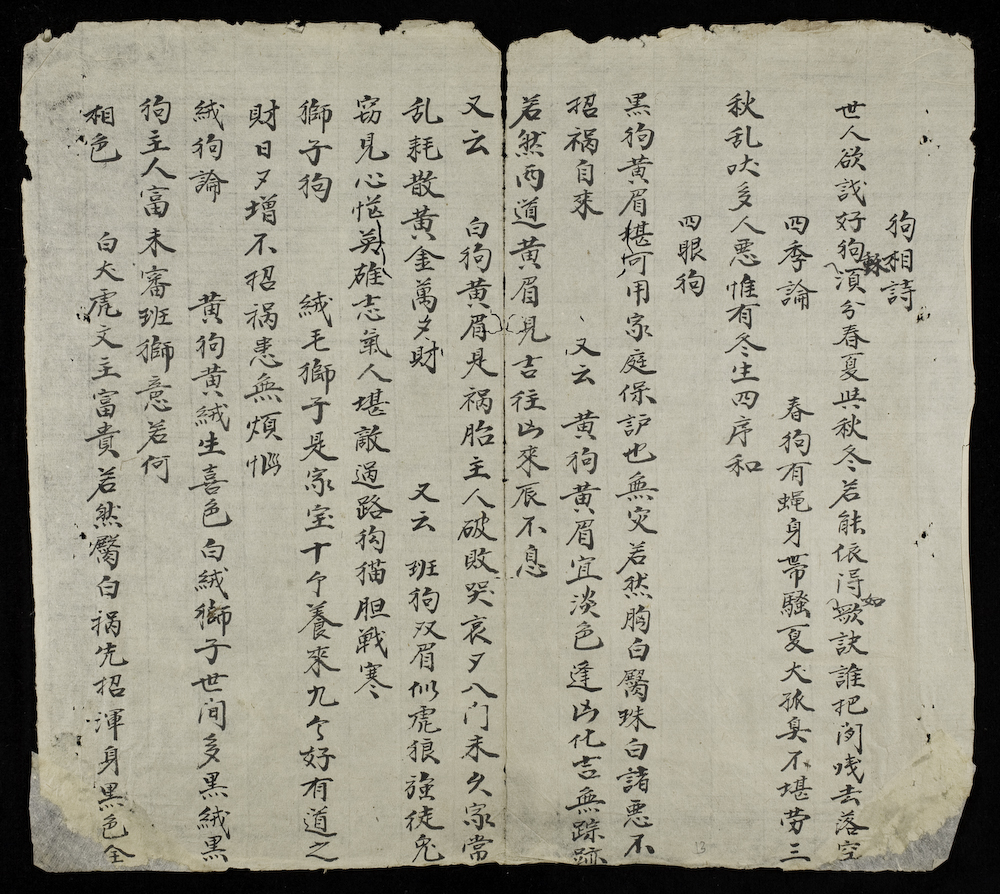 狗相詩
世人欲識好狗須分春夏與秋冬若能依得如歌訣誰把閑戋去落空
四季論　春狗有蝇身帶騷夏犬孤臭不堪劳三
秋乱吠多人悪惟有冬生四序和
四眼狗
黑狗黄眉堪可用家庭保护也無灾若然胸白屬珠白諸悪不
招祸自來　又云　黄狗黄眉宜淡色逢凶化吉無踪跡
若然两道黄眉見吉往凶來辰不息
又云　白狗黄眉是祸胎主人破敗哭哀夕八门未久家常
乱耗散黄金萬夕財　又云　班狗双眉似虎狼強徒鬼
窃見心恾英雄志氣人堪敵過路狗猫胆戦寒
獅子狗　绒毛獅子是家宝十个養來九个好有道之
財日夕增不招祸患無煩恼
绒狗論　黄狗黄绒生喜色白绒獅子世间多黑绒黑
狗主人富未審班獅意若何
相色　白犬虎文主富貴若然屬白祸先招渾身黑色全
13